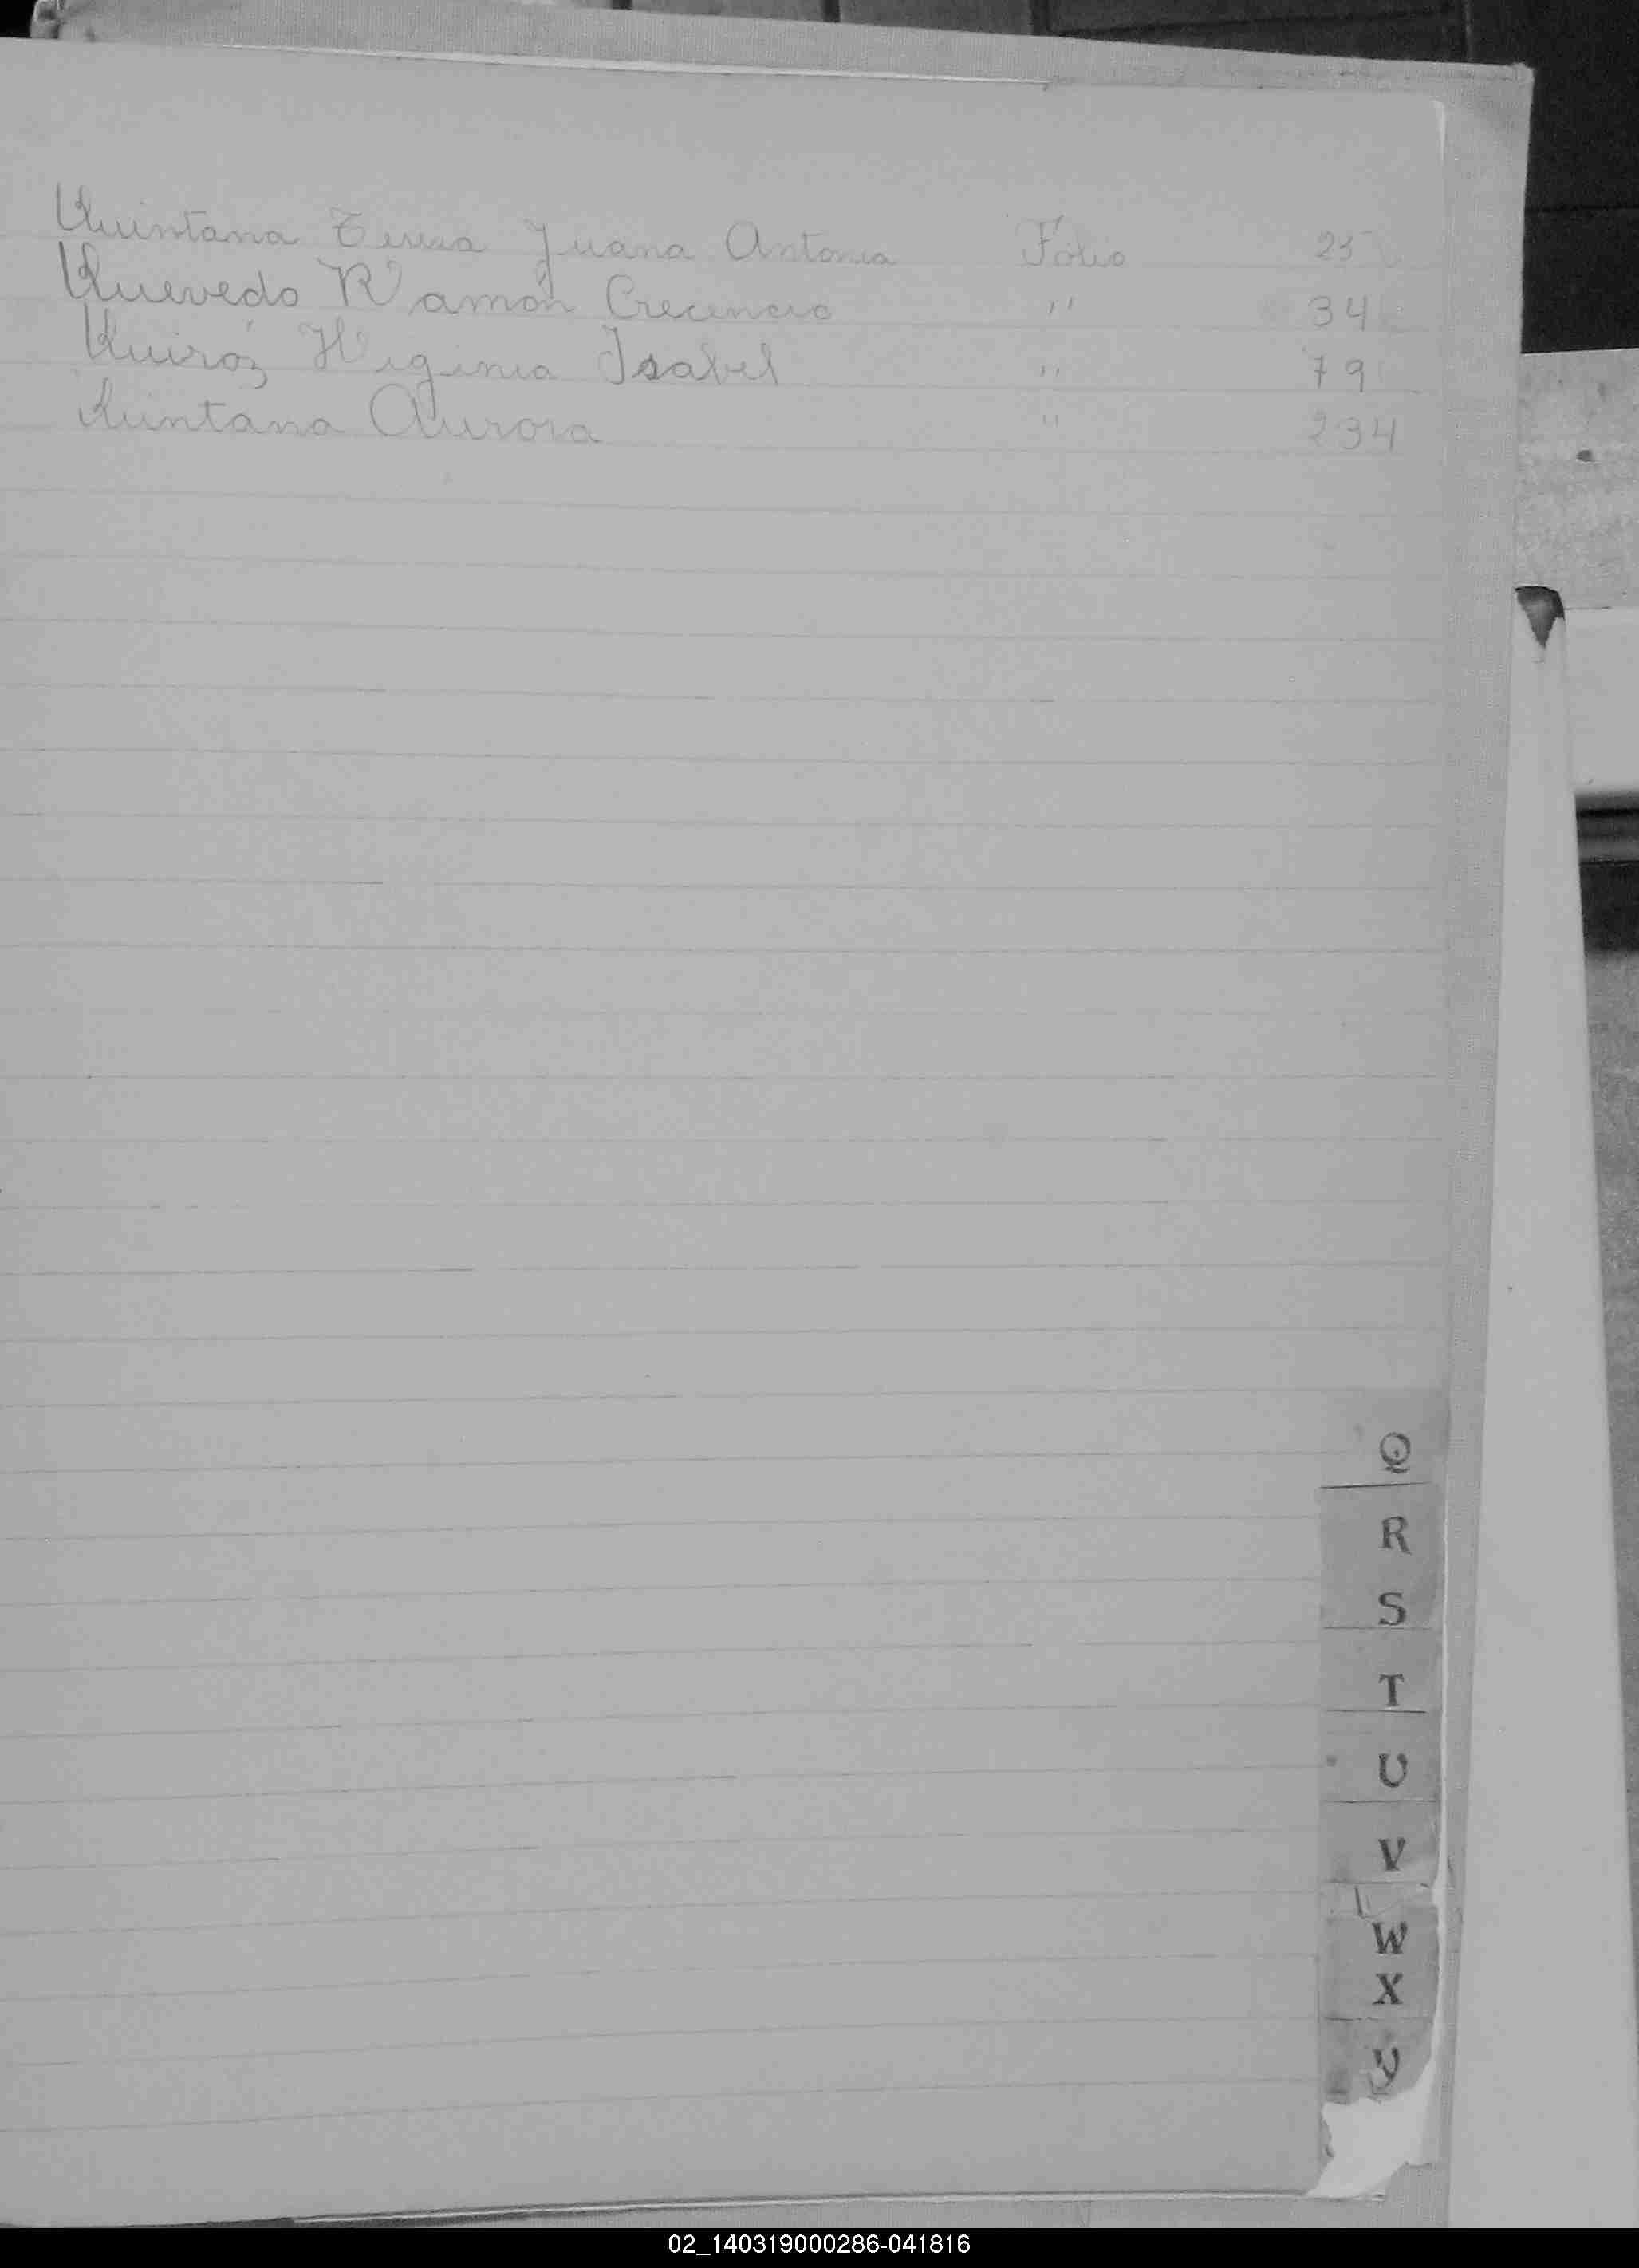 Quintana Teresa Juana Antonia Fólio 25
Quevedo Ramón Crecencio " 34
Quiróz Higinia Isabel " 79
Quintana Aurora " 234
Q
R
S
T
U
V
W
X
Y
02_140319000286-041816